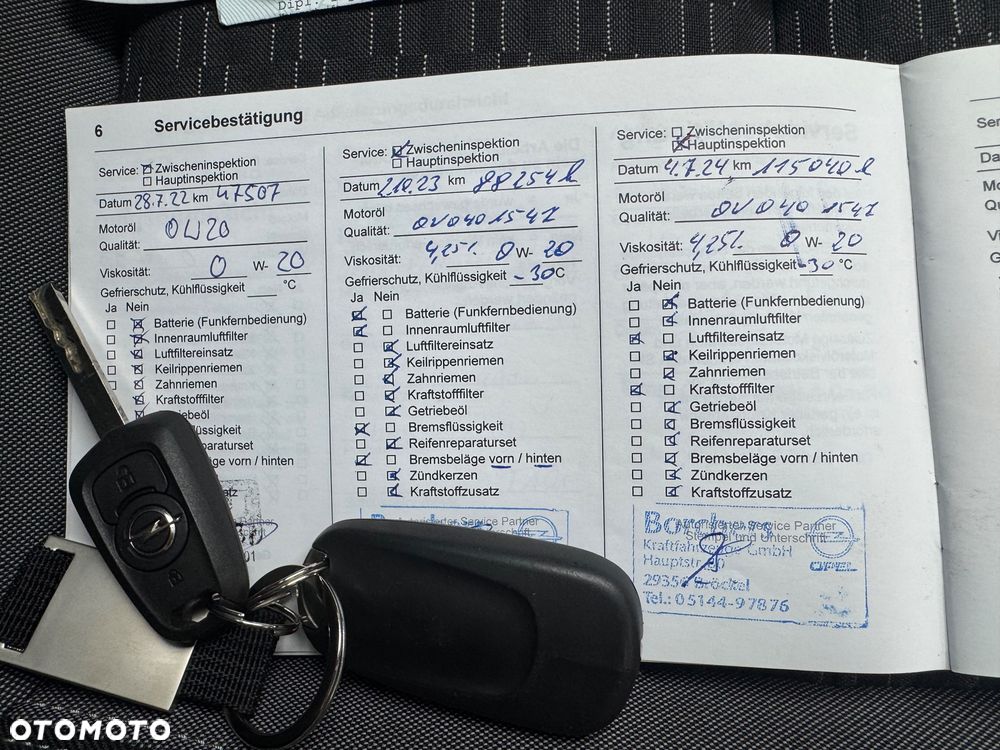 Dipl.
6 Servicebestätigung
Service: Zwischeninspektion
Hauptinspektion
Datum 28.7.22 km 47507
Motoröl
Qualität: 0W20
Viskosität: 0 W- 20
Gefrierschutz, Kühlflüssigkeit °C
Ja Nein
Batterie (Funkfernbedienung)
Innenraumluftfilter
Luftfiltereinsatz
Keilrippenriemen
Zahnriemen
Kraftstofffilter
Service: Zwischeninspektion
Hauptinspektion
Datum 2.10.23 km 88254
Motoröl
Qualität: OV0401547
Viskosität: 4,25l. 0 W- 20
Gefrierschutz, Kühlflüssigkeit -30°C
Ja Nein
Batterie (Funkfernbedienung)
Innenraumluftfilter
Luftfiltereinsatz
Keilrippenriemen
Zahnriemen
Kraftstofffilter
Getriebeöl
Bremsflüssigkeit
Reifenreparaturset
Bremsbeläge vorn / hinten
Zündkerzen
Kraftstoffzusatz
Service Partner
Service: Zwischeninspektion
Hauptinspektion
Datum 4.7.24 km 115040
Motoröl
Qualität: OV0401547
Viskosität: 4,25l. 0 W- 20
Gefrierschutz, Kühlflüssigkeit -30 °C
Ja Nein
Batterie (Funkfernbedienung)
Innenraumluftfilter
Luftfiltereinsatz
Keilrippenriemen
Zahnriemen
Kraftstofffilter
Getriebeöl
Bremsflüssigkeit
Reifenreparaturset
Bremsbeläge vorn / hinten
Zündkerzen
Kraftstoffzusatz
Autorisierter Service Partner
Stempel und Unterschrift
Kraftfahrzeuge GmbH
OPEL
Bröckel
Tel.: 05144-97876
OTOMOTO